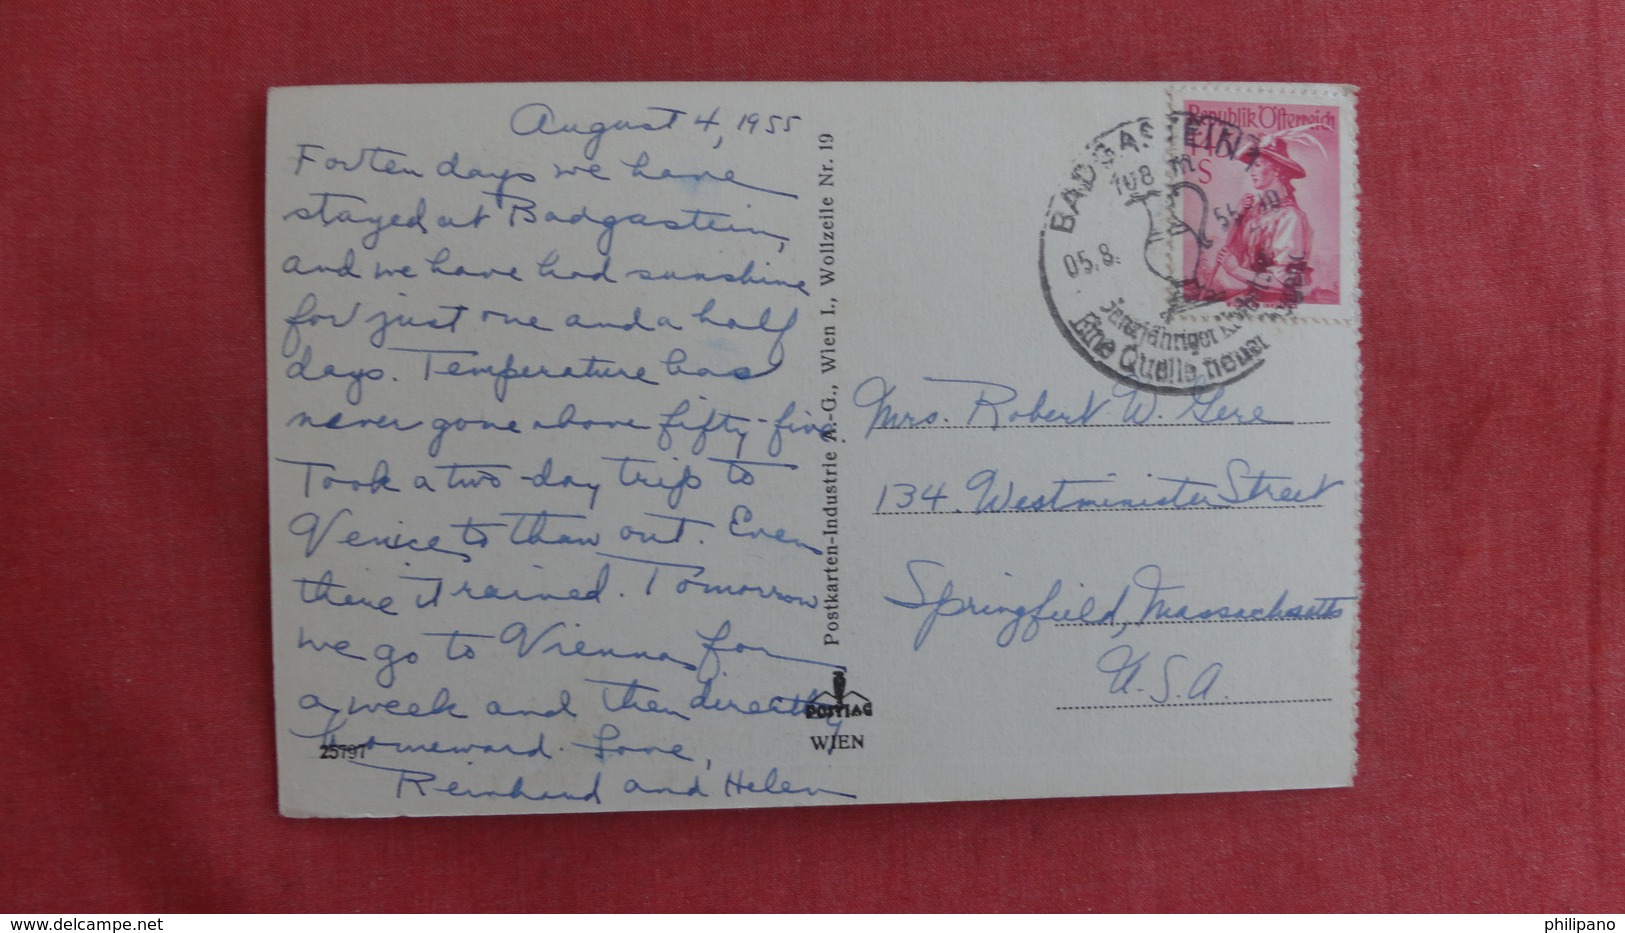 August 4, 1955
For ten days we have
stayed at Badgastein,
and we have had sunshine
for just one and a half
days. Temperature has
never gone above fifty-five
Took a two-day trip to
Venice to thaw out. Even
there it rained. Tomorrow
we go to Vienna for
a week and then directly
homeward. Love,
Reinhand and Helen
25797
Postkarten-Industrie A.-G., Wien I., Wollzeile Nr. 19
POSTIAG
WIEN
Republik Österreich
S
BADGASTEIN
108 m
05.8.
jähriger
Eine Quelle neuer
Mrs. Robert W. Gere
134 Westminister Street
Springfield, Massachusetts
U.S.A.
philipano